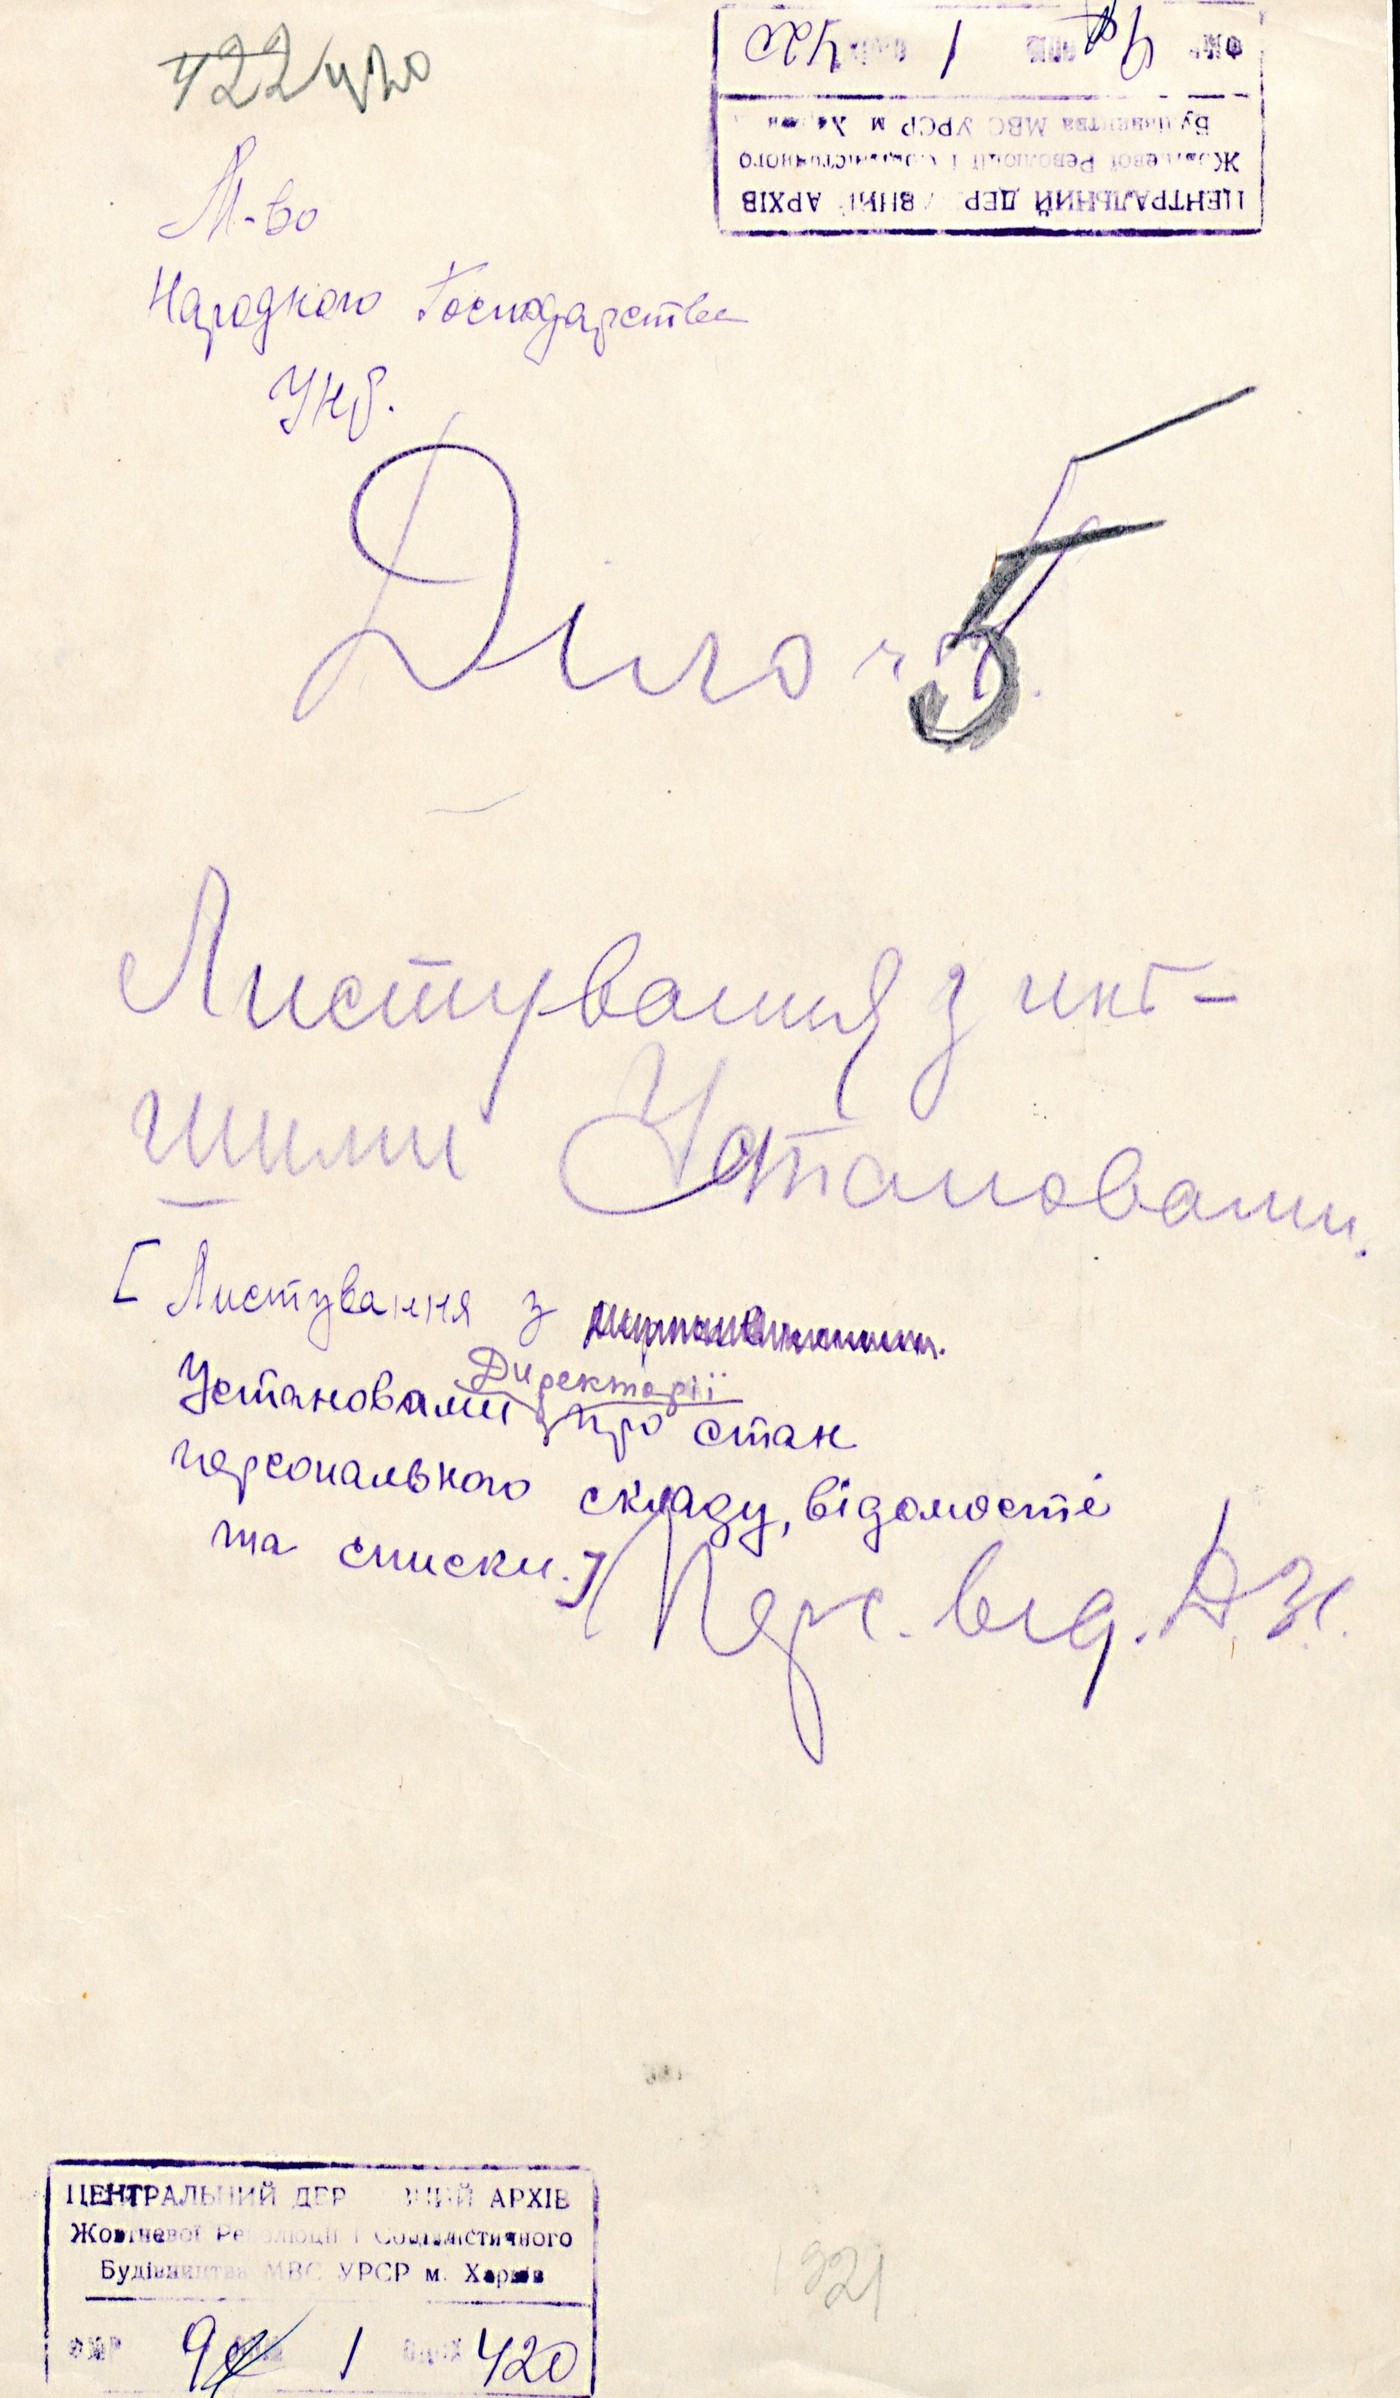 422 420
М-во
Народного Господарства
УНР.
Діло ч. 5
Листування з инт-
шими Установами.
[ Листування з
Установами Директорії про стан
персонального складу, відомості
та списки.]
Перс. від. Д.
ЦЕНТРАЛЬНИЙ ДЕРЖАВНИЙ АРХІВ
Жовтневої Революції і Соціалістичного
Будівництва МВС УРСР м. Харків
1 420
ЦЕНТРАЛЬНИЙ ДЕРЖАВНИЙ АРХІВ
Жовтневої Революції і Соціалістичного
Будівництва МВС УРСР м. Харків
1 420
1921